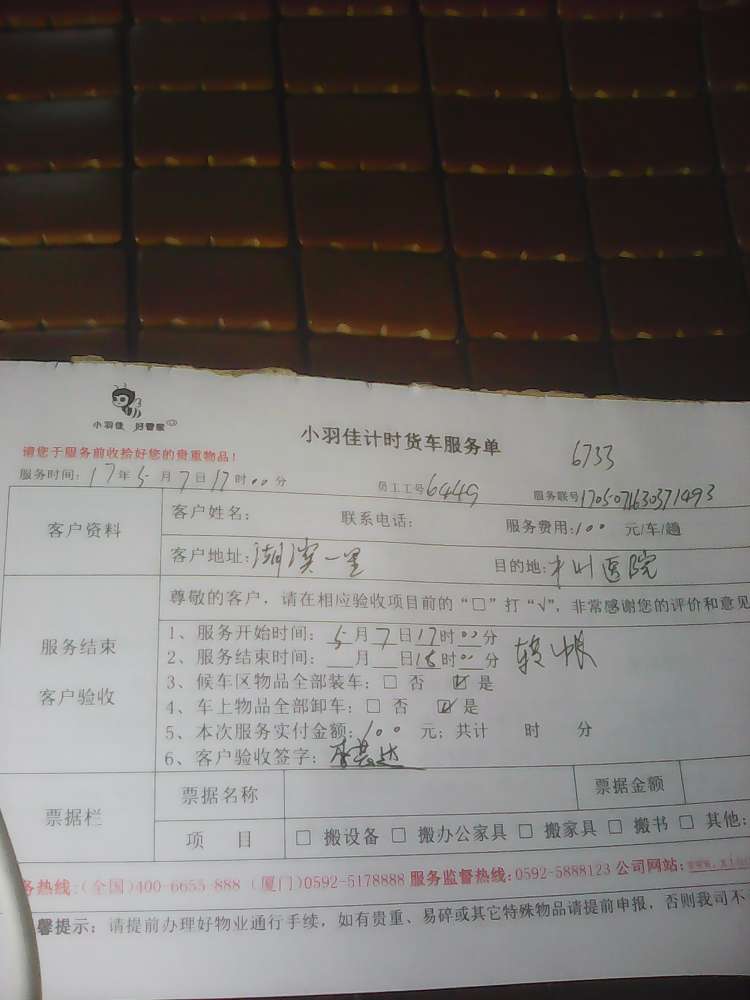 小羽佳 好管家
小羽佳计时货车服务单
6733
请您于服务前收拾好您的贵重物品！
服务时间：17年5月7日17时00分 员工工号6449 服务联号1705071630371493
客户资料
客户姓名： 联系电话： 服务费用：100 元/车/趟
客户地址：湖滨一里 目的地：中山医院
服务结束
客户验收
尊敬的客户，请在相应验收项目前的“□”打“√”，非常感谢您的评价和意见
1、服务开始时间：5月7日17时00分
2、服务结束时间：__月__日18时00分
转帐
3、候车区物品全部装车：□ 否 ☑ 是
4、车上物品全部卸车：□ 否 ☑ 是
5、本次服务实付金额：100 元；共计 时 分
6、客户验收签字：
票据栏
票据名称 票据金额
项 目 □ 搬设备 □ 搬办公家具 □ 搬家具 □ 搬书 □ 其他：
务热线：(全国)400-6655-888 (厦门)0592-5178888 服务监督热线：0592-5888123 公司网站：
馨提示：请提前办理好物业通行手续，如有贵重、易碎或其它特殊物品请提前申报，否则我司不